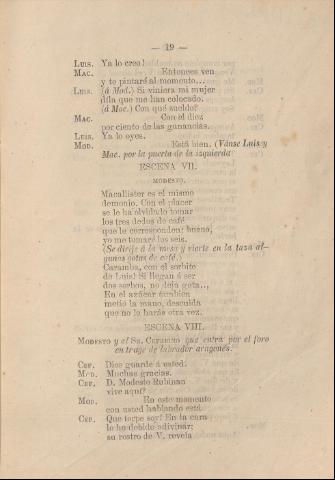 — 19 —
LUIS. Ya lo creo!
MAC. Entonces ven
y te pintaré al momento...
LUIS. (á Mod.) Si viniera mi mujer
díla que me han colocado.
(á Mac.) Con qué sueldo?
MAC. Con el diez
por ciento de las ganancias.
LUIS. Ya lo oyes.
MOD. Está bien. (Vánse Luis y
Mac. por la puerta de la izquierda
ESCENA VII.
MODESTO.
Macallister es el mismo
demonio. Con el placer
se le ha olvidado tomar
los tres dedos de café
que le corresponden; bueno,
yo me tomaré los seis.
(Se dirije á la mesa y vierte en la taza al-
gunas gotas de café.)
Caramba, con el sorbito
de Luis! Si llegan á ser
dos sorbos, no deja gota..,
En el azúcar tambien
metió la mano, descuida
que no lo harás otra vez.
ESCENA VIII.
MODESTO y el SR. CEFERINO que entra por el foro
en traje de labrador aragonés.
CEF. Dios guarde á usted.
MOD. Muchas gracias.
CEF. D. Modesto Rubinan
vive aquí?
MOD. En este momento
con usted hablando está
CEF. Que torpe soy! En la cara
lo ha debido adivinar;
su rostro de V. revela